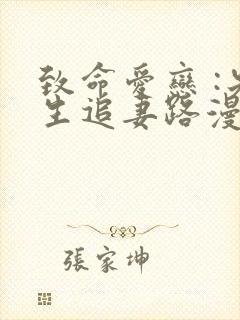 致命愛戀:
生追妻路漫
張家坤